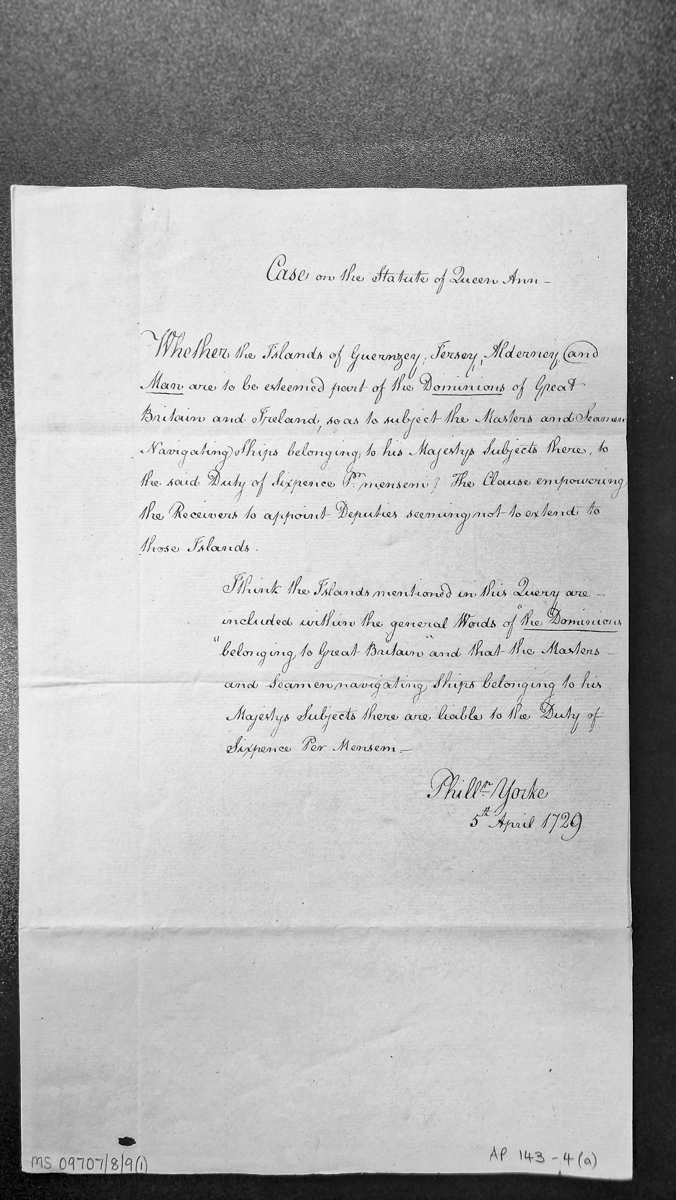 Case on the Statute of Queen Ann –
Whether the Islands of Guernzey, Jersey, Alderney, (and
Man are to be esteemed part of the Dominions of Great
Britain and Ireland, so as to subject the Masters and Seamen
Navigating Ships belonging to his Majestys Subjects there, to
the said Duty of Sixpence Pr. mensem? The Clause empowering
the Receivers to appoint Deputies seeming not to extend to
those Islands.
I think the Islands mentioned in this Query are –
included within the general Words of "the Dominions
"belonging to Great Britain" and that the Masters –
and Seamen navigating Ships belonging to his
Majestys Subjects there are liable to the Duty of
Sixpence Per Mensem –
Phill Yorke
5th April 1729
MS 09707/8/9(1)
AP 143-4(a)